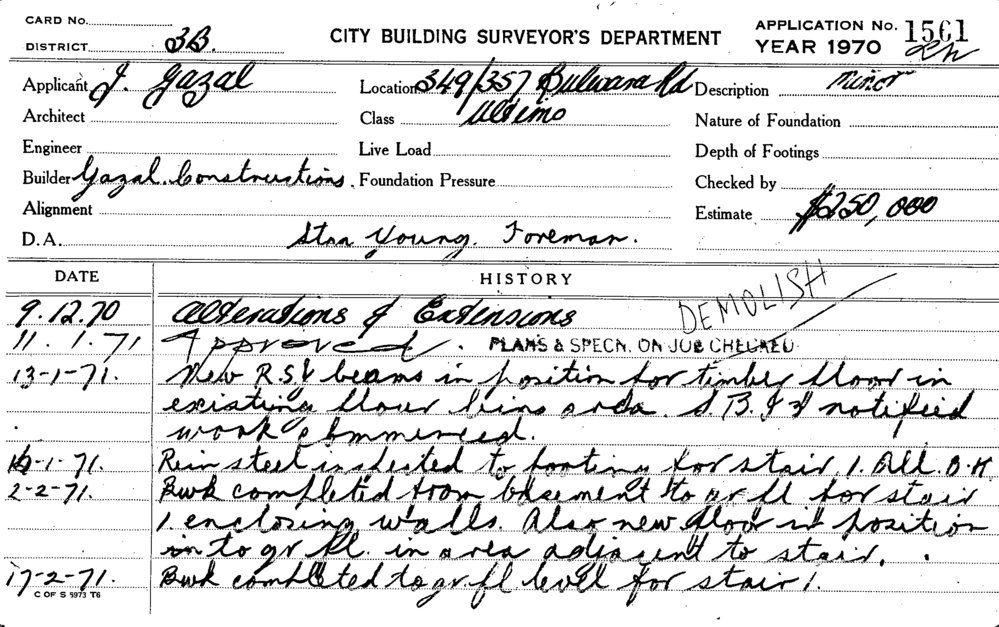 CARD No.
DISTRICT 3B.
CITY BUILDING SURVEYOR'S DEPARTMENT
APPLICATION No. 1561
YEAR 1970
Applicant J. Gazal
Location 349/357 Bulwara Rd
Description Minor
Architect
Class Ultimo
Nature of Foundation
Engineer
Live Load
Depth of Footings
Builder Gazal Constructions.
Foundation Pressure
Checked by
Alignment
Estimate $250,000
D.A. Stan Young. Foreman.
DATE HISTORY
DEMOLISH
9.12.70 Alterations & Extensions
11.1.71 Approved. PLANS & SPECN. ON JOB CHECKED
13-1-71. New R.S.J beams in position for timber floor in
existing flour bins area. notified
work commenced.
-1-71. Rein steel inspected to footing for stair 1. All O.K
2-2-71. Bwk completed from basement to gr fl for stair
1. enclosing walls. Also new floor in position
in to gr fl. in area adjacent to stair.
17-2-71. Bwk completed to gr. fl level for stair 1.
C OF S 5973 T6